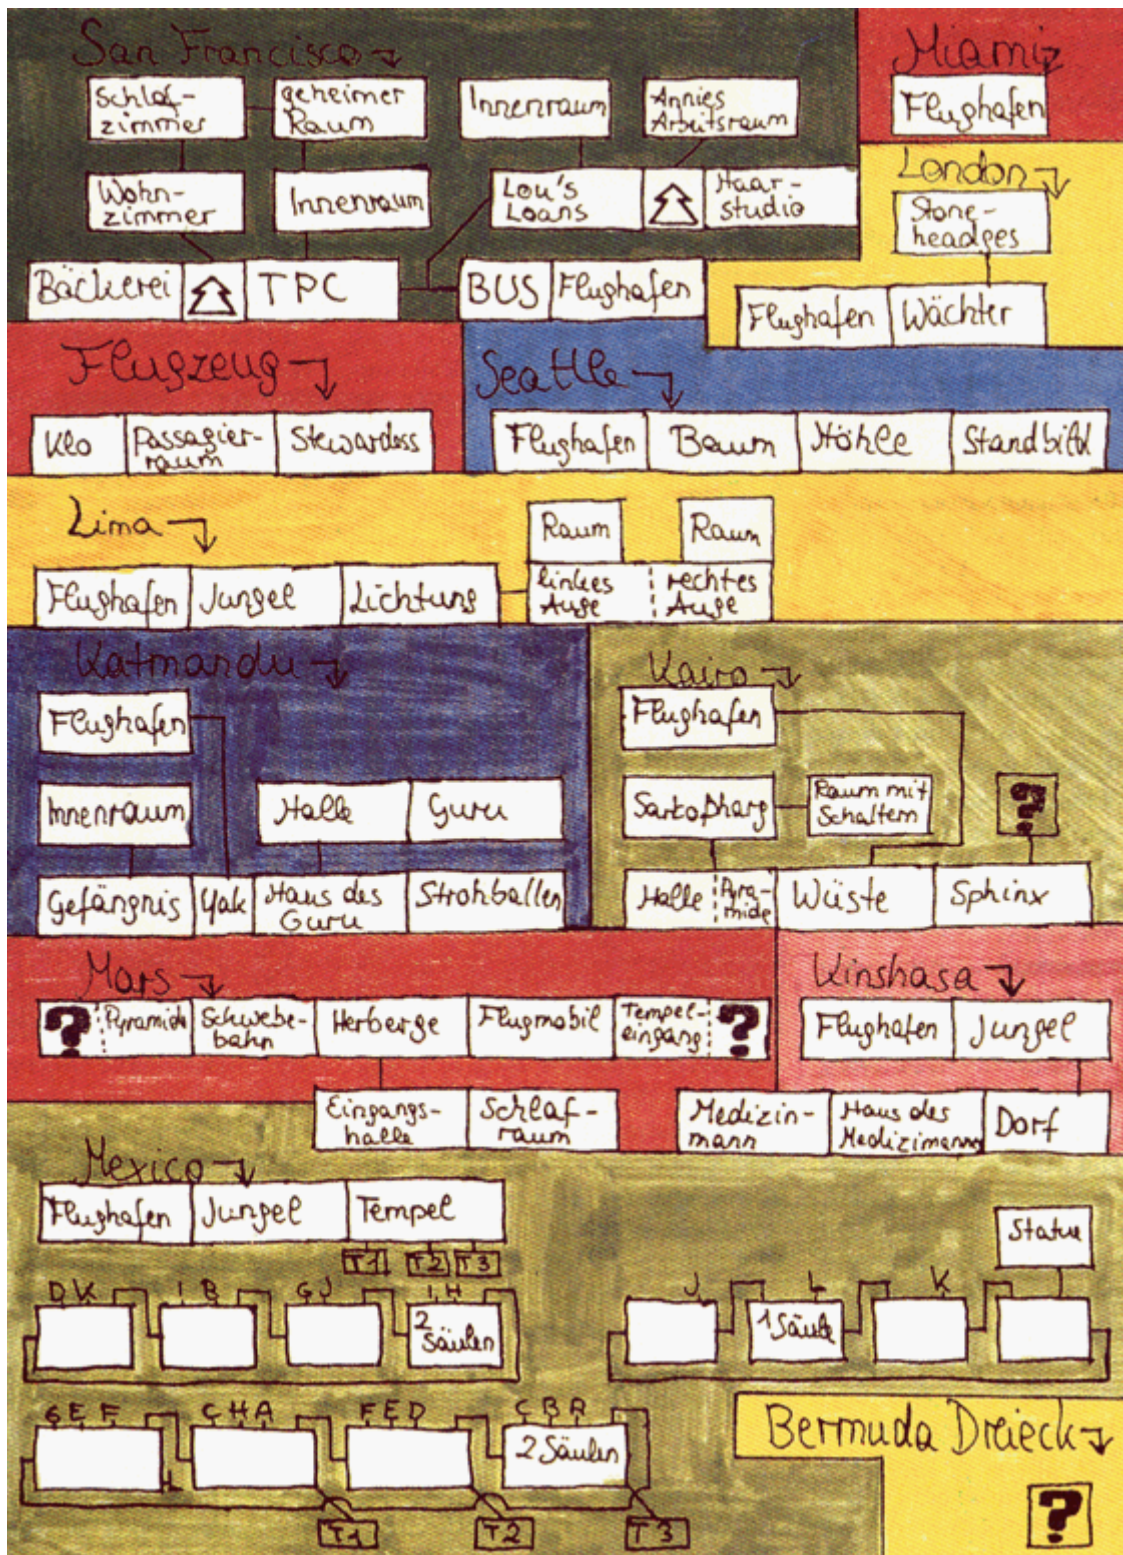 San Francisco
Schlaf-
zimmer
geheimer
Raum
Innenraum
Annies
Arbeitsraum
Wohn-
zimmer
Innenraum
Lou's
Loans
Haar-
studio
Bäckerei
TPC
BUS
Flughafen
Miami
Flughafen
London
Stone-
headges
Flughafen
Wächter
Flugzeug
Klo
Passagier-
raum
Stewardess
Seattle
Flughafen
Baum
Höhle
Standbild
Lima
Raum
Raum
Flughafen
Jungel
Lichtung
linkes
Auge
rechtes
Auge
Katmandu
Flughafen
Innenraum
Halle
Guru
Gefängnis
Yak
Haus des
Guru
Strohballen
Kairo
Flughafen
Sarkopharg
Raum mit
Schaltern
?
Halle
Pyra-
mide
Wüste
Sphinx
Mars
?
Pyramide
Schwebe-
bahn
Herberge
Flugmobil
Tempel-
eingang
?
Eingangs-
halle
Schlaf-
raum
Kinshasa
Flughafen
Jungel
Medizin-
mann
Haus des
Medizimanns
Dorf
Mexico
Flughafen
Jungel
Tempel
T1
T2
T3
Statue
D K
I B
G J
I H
2
Säulen
J
L
K
1 Säule
G E F
C H A
F E D
C B A
2 Säulen
T1
T2
T3
Bermuda Dreieck
?